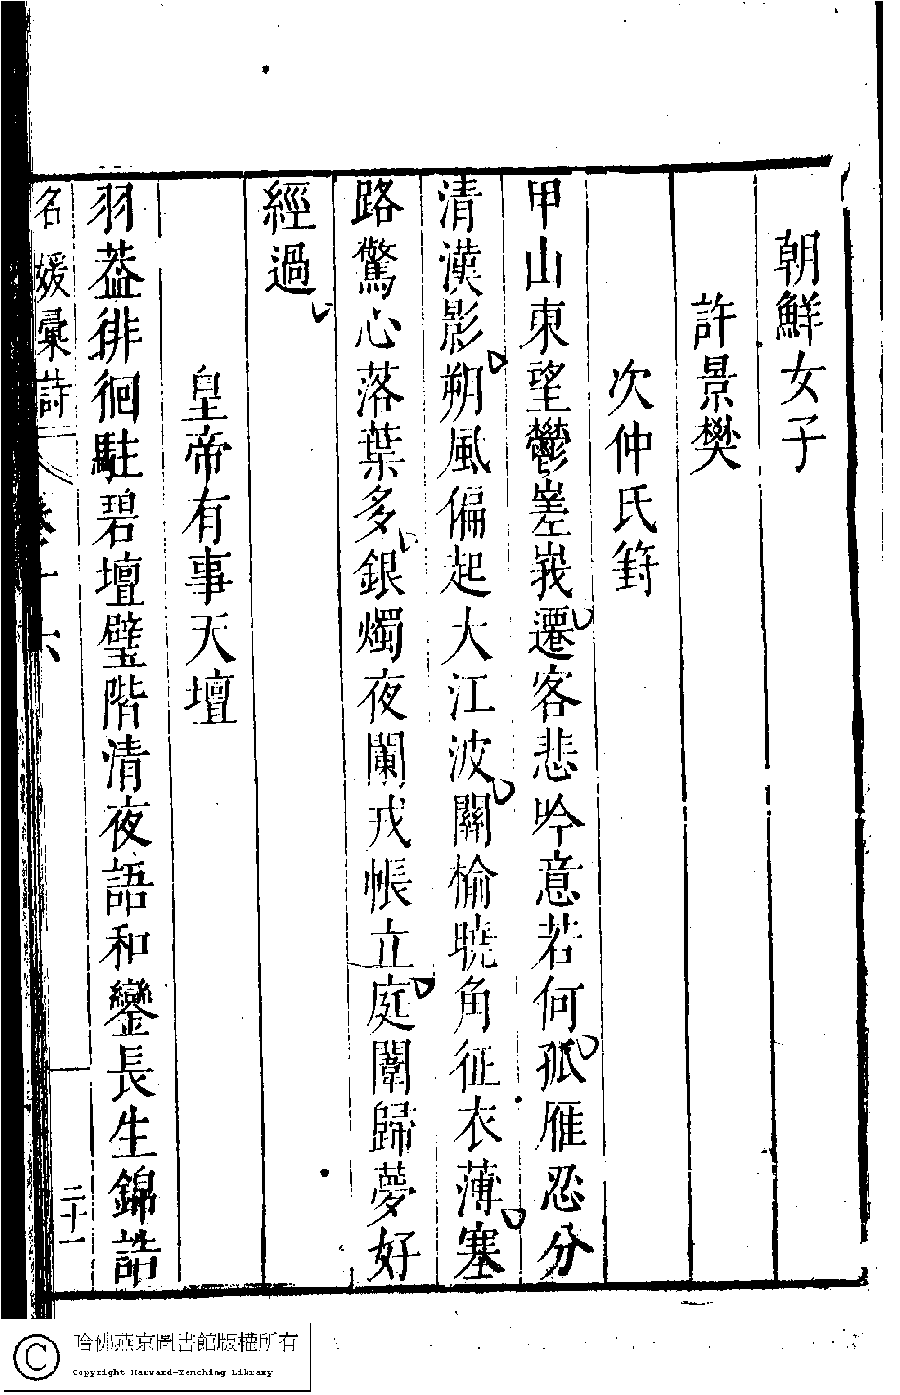 朝鮮女子
許景樊
次仲氏筠
甲山東望鬱嵯峩遷客悲吟意若何孤雁忍分
清漢影朔風偏起大江波關榆曉角征衣薄塞
路驚心落葉多銀燭夜闌戎帳立庭闈歸夢好
經過
皇帝有事天壇
羽葢徘徊駐碧壇璧階清夜語和鑾長生錦誥
名媛彙詩
卷十六
二十一
哈佛燕京圖書館版權所有
Copyright Harvard-Yenching Library